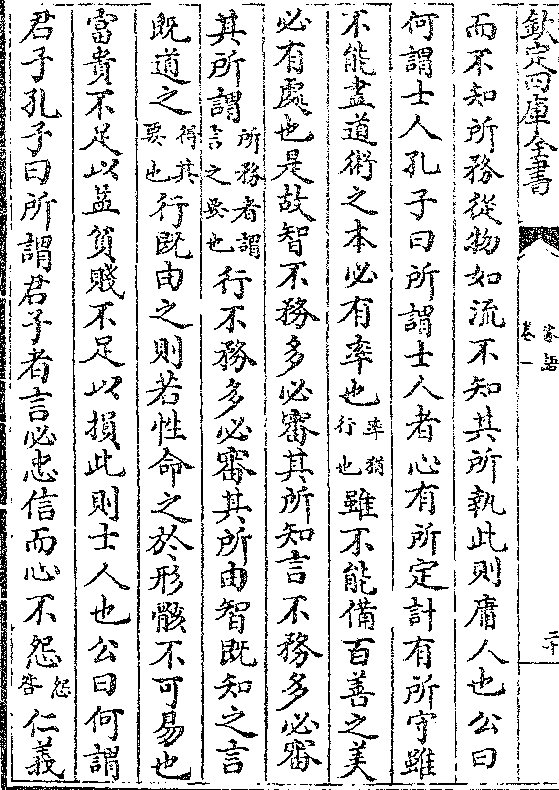 欽定四庫全書
家語
卷一
二十
而不知所務從物如流不知其所執此則庸人也公曰
何謂士人孔子曰所謂士人者心有所定計有所守雖
不能盡道術之本必有率也率猶行也雖不能備百善之美
必有處也是故智不務多必審其所知言不務多必審
其所謂所務者謂言之要也行不務多必審其所由智既知之言
既道之得其要也行既由之則若性命之於形骸不可易也
富貴不足以益貧賤不足以損此則士人也公曰何謂
君子孔子曰所謂君子者言必忠信而心不怨怨咎仁義